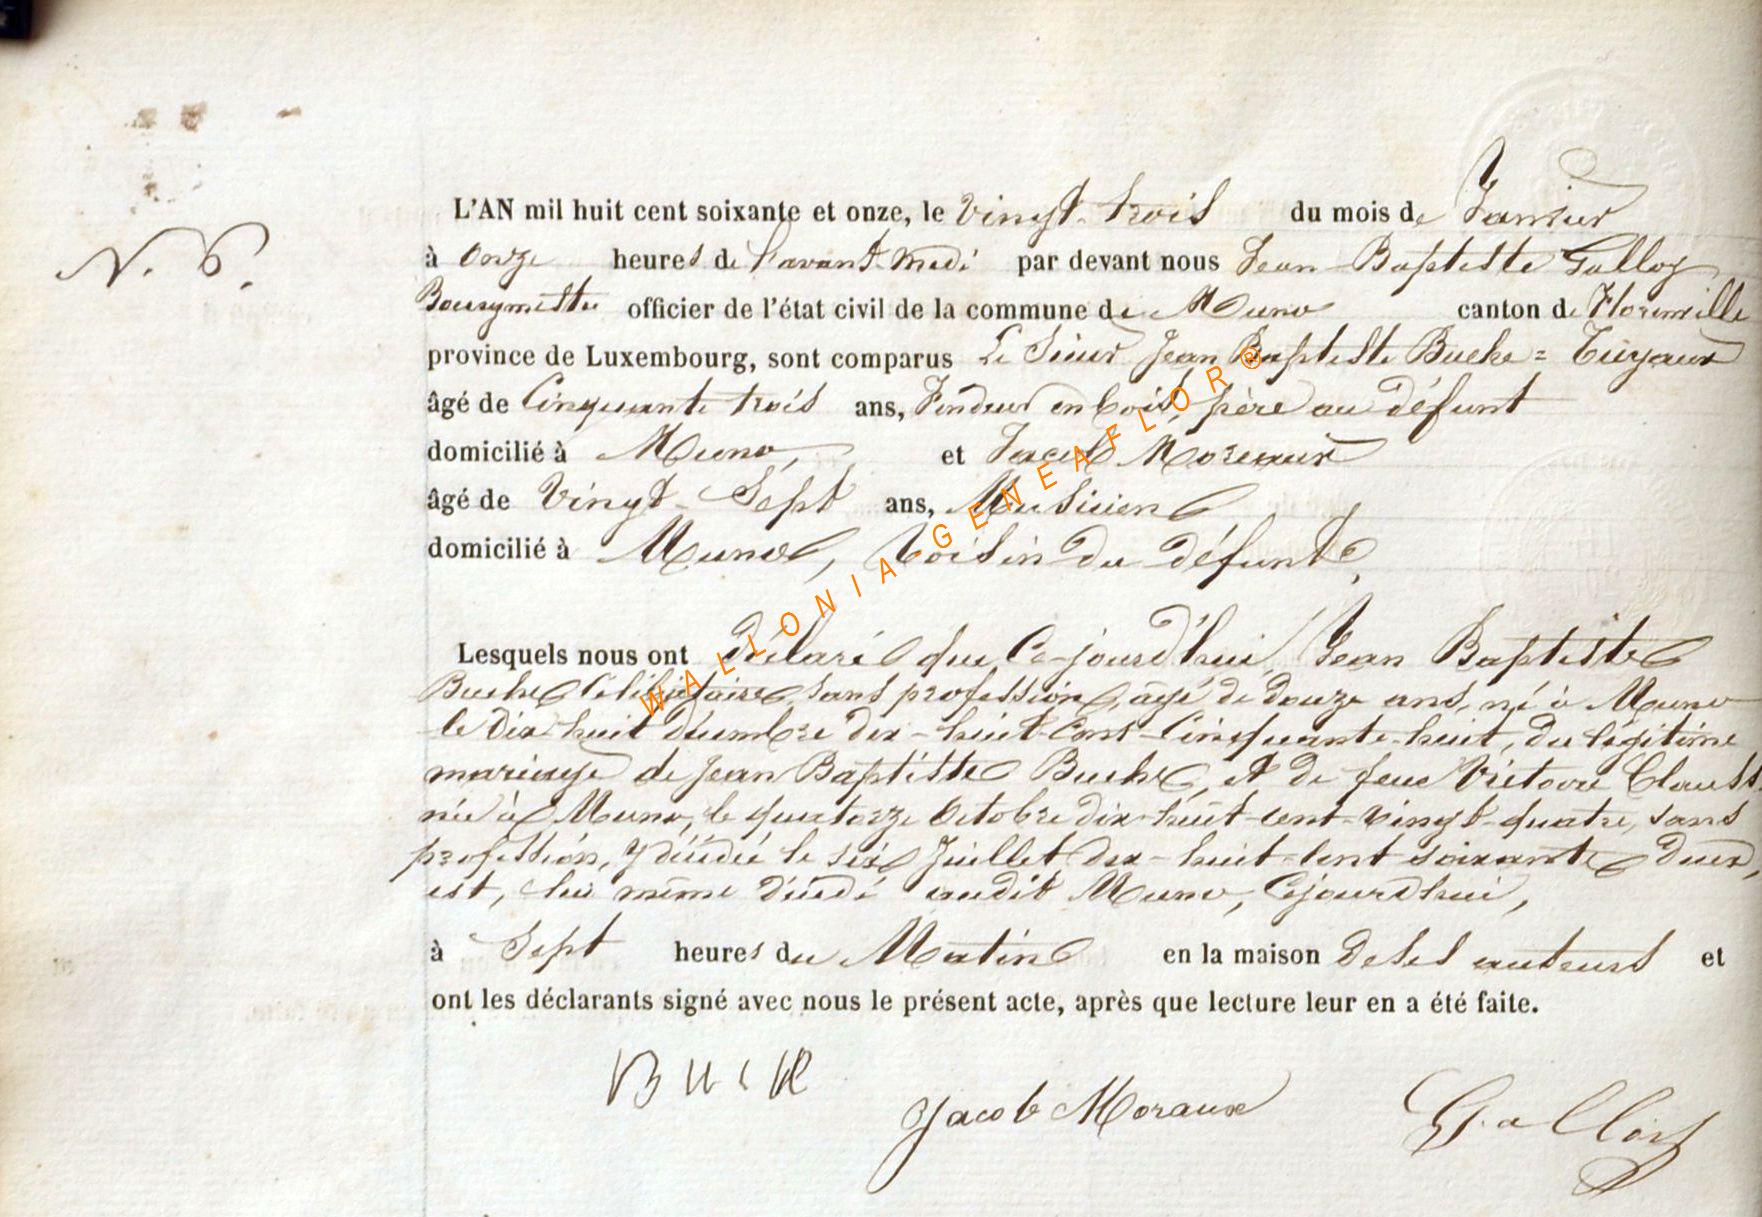 N. 6.
L'AN mil huit cent soixante et onze, le Vingt-trois du mois de Janvier
à Onze heures de l'avant-Midi par devant nous Jean-Baptiste Galloy
Bourgmestre officier de l'état civil de la commune de Muno canton de Florenville
province de Luxembourg, sont comparus Le Sieur Jean Baptiste Buche = Tuyaux
âgé de Cinquante trois ans, Fendeur en bois, père au défunt
domicilié à Muno, et Jacob Moreaux
âgé de Vingt-Sept ans, Musicien
domicilié à Muno, Voisin du défunt,
Lesquels nous ont Déclaré que Ce-jourd'hui, Jean Baptiste
Buche Célibataire, sans profession, agé de douze ans, né à Muno
le Dix huit décembre dix-huit-Cent-Cinquante-huit, du légitime
mariage de Jean Baptiste Buche, et de feue Victoire Clauss,
née à Muno, le quatorze Octobre dix-huit-cent-vingt-quatre, sans
profession, y décédée le six Juillet dix-huit-cent soixante deux,
est, lui même décédé audit Muno, Cejourd'hui,
à Sept heures du Matin en la maison de ses auteurs et
ont les déclarants signé avec nous le présent acte, après que lecture leur en a été faite.
Jacob Moraux
Galloy
WALLONIA GENEAFLOR ®